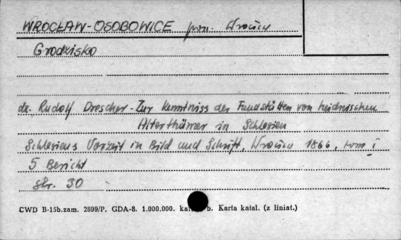 WROCŁAW-OSOBOWICE pow. Wrocław
Grodzisko
dr. Rudolf Drescher - Zur Kenntniss der Fundstätten von heidnischen
Alterthümer in Schlesien
Schlesiens Vorzeit in Bild und Schrift, Wrocław 1866, tom I
5 Bericht
str. 30
CWD B-15b.zam. 2899/P. GDA-8. 1.000.000. b. Karta katal. (z liniat.)